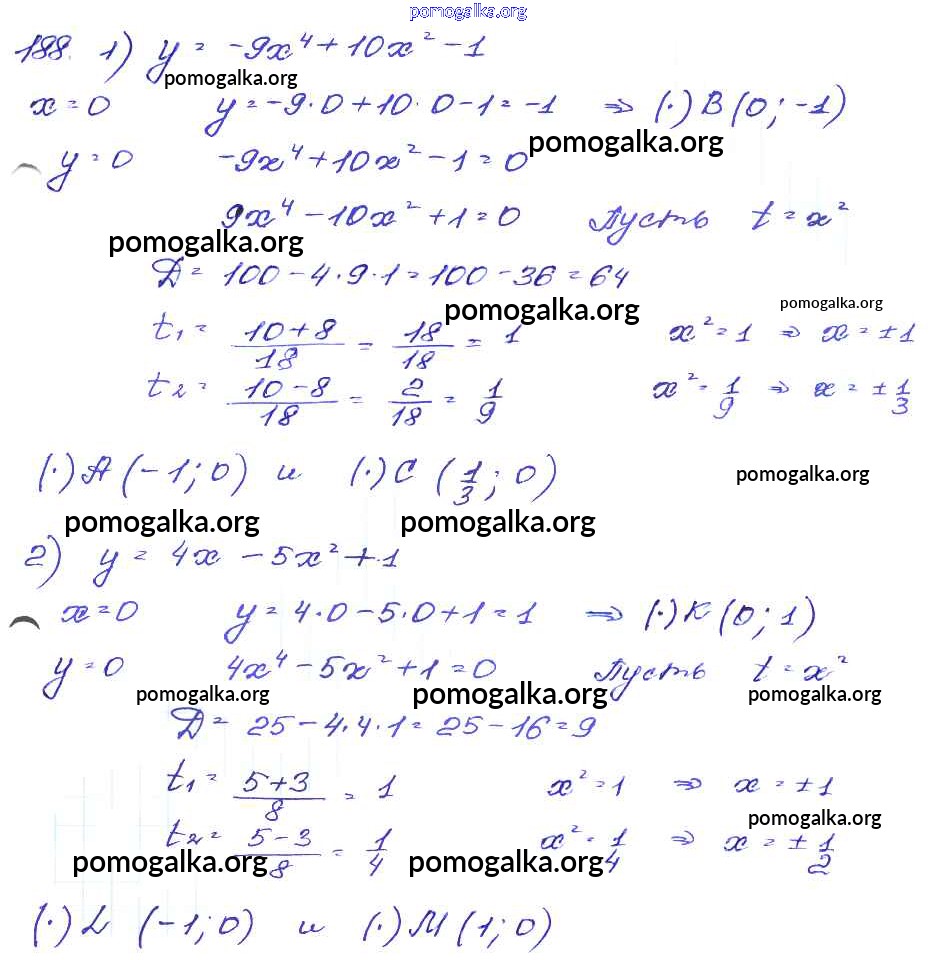 pomogalka.org
188. 1) y = -9x⁴ + 10x² - 1
pomogalka.org
x = 0 y = -9·0 + 10·0 - 1 = -1 ⇒ (·) B (0; -1)
pomogalka.org
y = 0 -9x⁴ + 10x² - 1 = 0
9x⁴ - 10x² + 1 = 0 Пусть t = x²
pomogalka.org
Д = 100 - 4·9·1 = 100 - 36 = 64
pomogalka.org pomogalka.org
t₁ = (10+8)/18 = 18/18 = 1 x² = 1 ⇒ x = ±1
t₂ = (10-8)/18 = 2/18 = 1/9 x² = 1/9 ⇒ x = ± 1/3
(·) A (-1; 0) и (·) C (1/3; 0)
pomogalka.org
pomogalka.org pomogalka.org
2) y = 4x - 5x² + 1
x = 0 y = 4·0 - 5·0 + 1 = 1 ⇒ (·) K (0; 1)
y = 0 4x⁴ - 5x² + 1 = 0 Пусть t = x²
pomogalka.org pomogalka.org pomogalka.org
Д = 25 - 4·4·1 = 25 - 16 = 9
t₁ = (5+3)/8 = 1 x² = 1 ⇒ x = ±1
pomogalka.org
t₂ = (5-3)/8 = 1/4 x² = 1/4 ⇒ x = ± 1/2
pomogalka.org pomogalka.org
(·) L (-1; 0) и (·) M (1; 0)